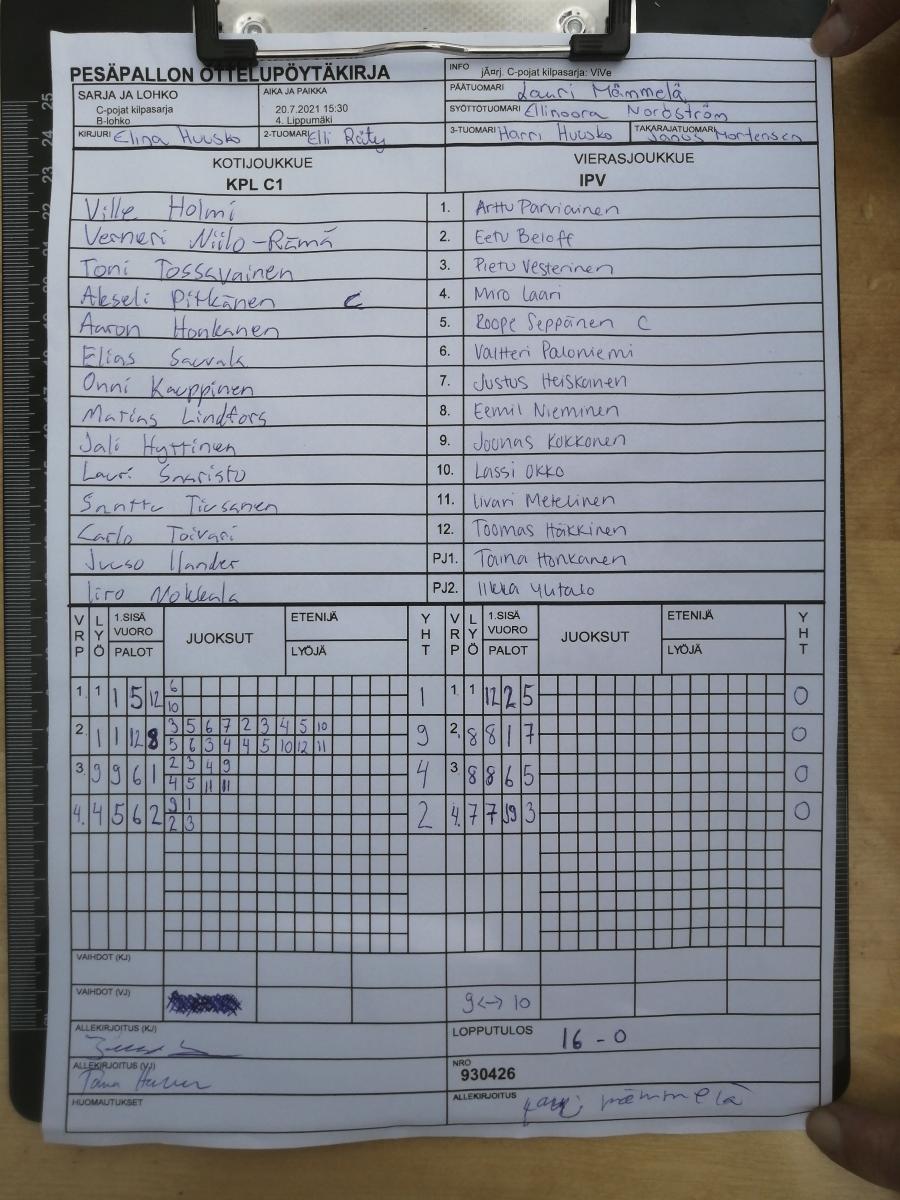 PESÄPALLON OTTELUPÖYTÄKIRJA
INFO jÃ¤rj. C-pojat kilpasarja: ViVe
SARJA JA LOHKO
C-pojat kilpasarja
B-lohko
AIKA JA PAIKKA
20.7.2021 15:30
4. Lippumäki
PÄÄTUOMARI Lauri Mämmelä
SYÖTTÖTUOMARI Ellinoora Nordström
KIRJURI Elina Huusko 2-TUOMARI Elli Räty 3-TUOMARI Harri Huusko TAKARAJATUOMARI Janus Mortensen
KOTIJOUKKUE VIERASJOUKKUE
KPL C1 IPV
Ville Holmi 1. Arttu Parviainen
Verneri Niilo-Rämä 2. Eetu Beloff
Toni Tossavainen 3. Pietu Vesterinen
Akseli Pitkänen C 4. Miro Laari
Aaron Honkanen 5. Roope Seppänen C
Elias Sauvala 6. Valtteri Paloniemi
Onni Kauppinen 7. Justus Heiskanen
Matias Lindfors 8. Eemil Nieminen
Jali Hyttinen 9. Joonas Kokkonen
Lauri Saaristo 10. Lassi Okko
Santtu Tiusanen 11. Iivari Metelinen
Carlo Toivari 12. Toomas Häkkinen
Juuso Ilander PJ1. Taina Honkanen
Iiro Mokkala PJ2. Ilkka Yutalo
VRP LYÖ 1.SISÄ VUORO PALOT JUOKSUT ETENIJÄ LYÖJÄ YHT VRP LYÖ 1.SISÄ VUORO PALOT JUOKSUT ETENIJÄ LYÖJÄ YHT
1. 1 1 5 12 6 1 1. 1 12 2 5 0
10
2. 1 1 12 8 3 5 6 7 2 3 4 5 10 9 2. 8 8 1 7 0
5 6 3 4 4 5 10 12 11
3. 9 9 6 1 2 3 4 9 4 3. 8 8 6 5 0
4 5 11 11
4. 4 5 6 2 9 1 2 4. 7 7 3 0
2 3
VAIHDOT (KJ)
VAIHDOT (VJ) 9<->10
ALLEKIRJOITUS (KJ) LOPPUTULOS 16 - 0
ALLEKIRJOITUS (VJ) NRO 930426
HUOMAUTUKSET ALLEKIRJOITUS mämmelä